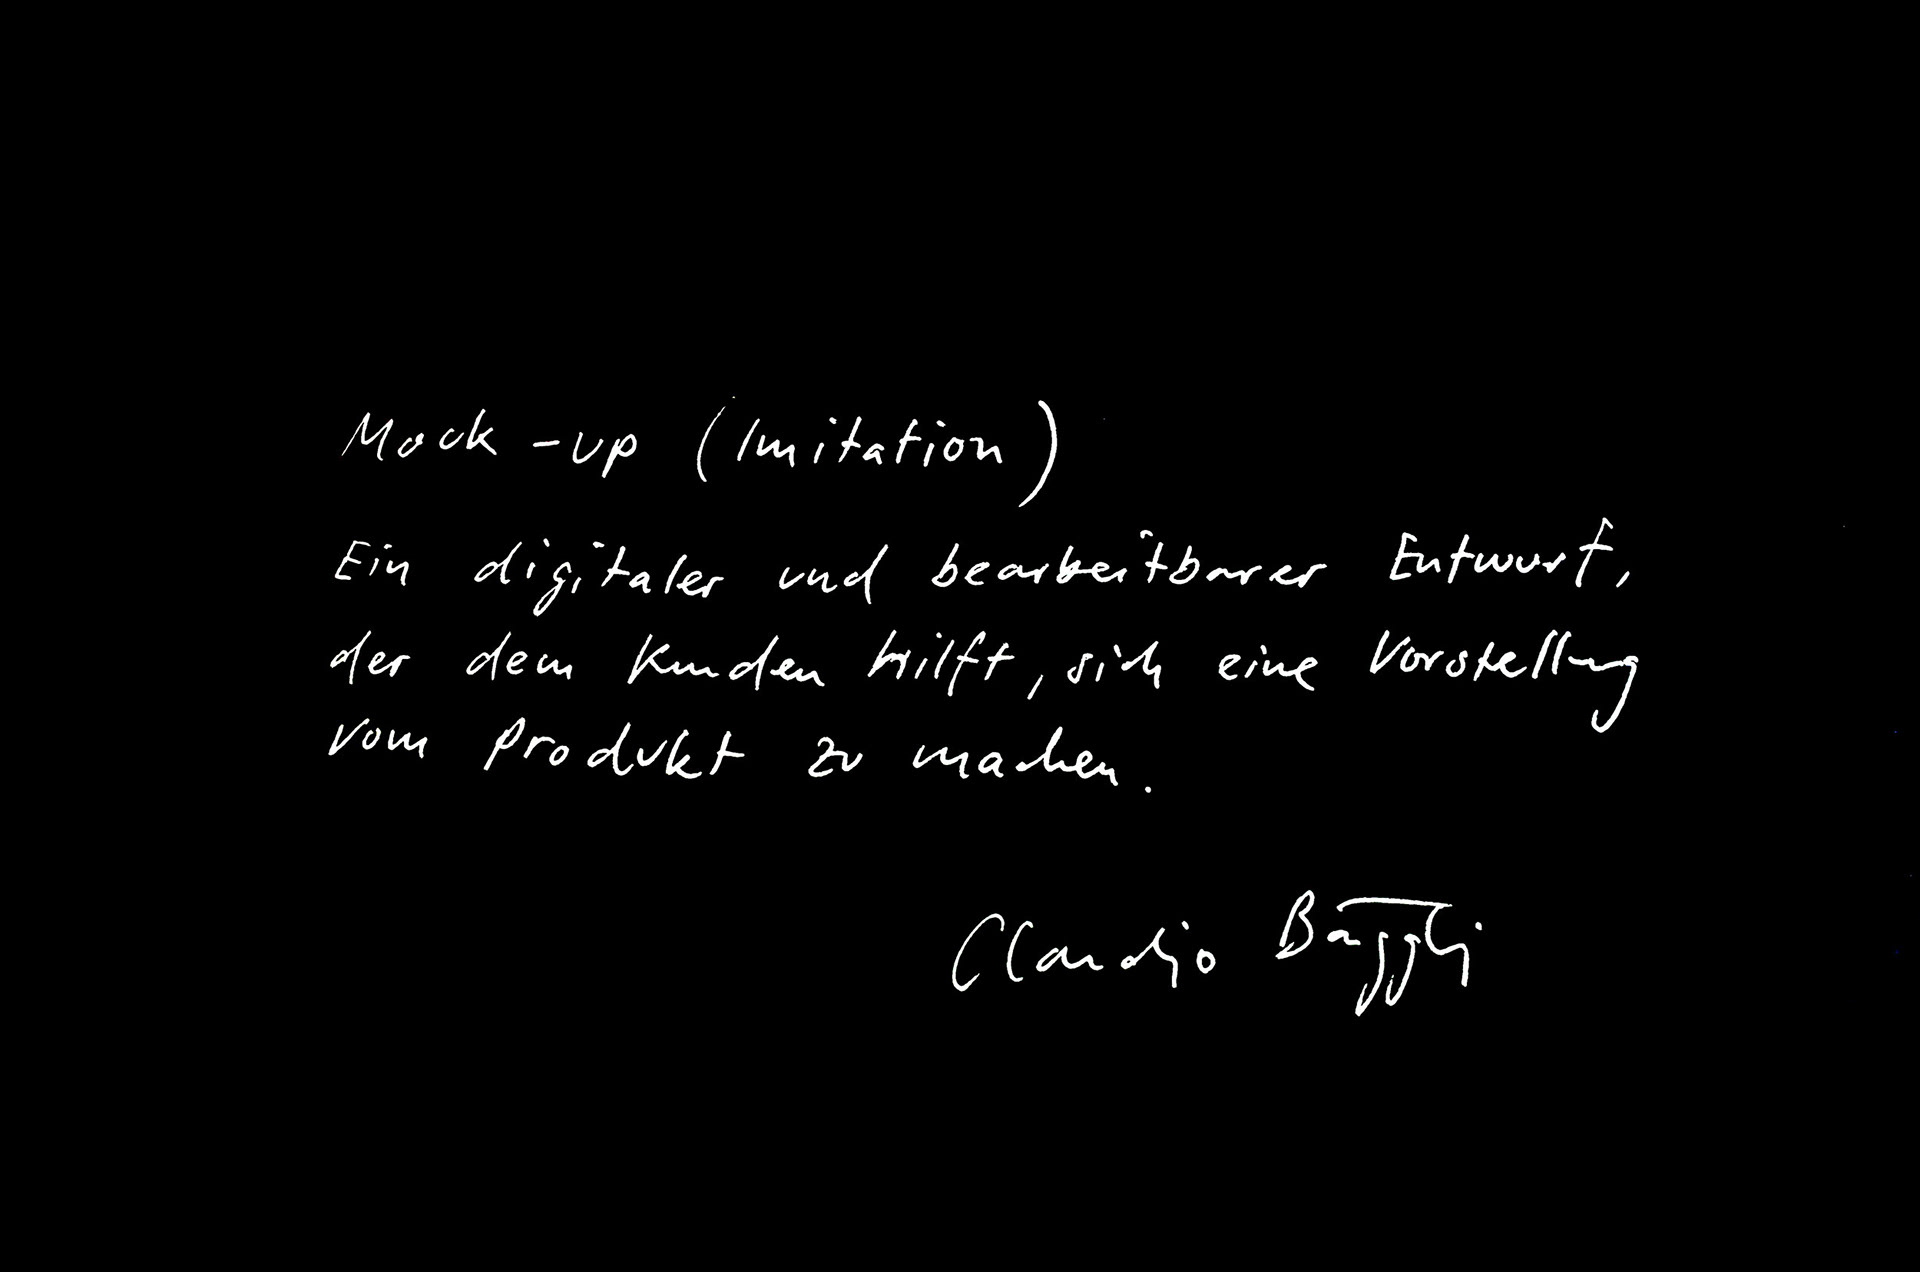 Mock-up (Imitation)
Ein digitaler und bearbeitbarer Entwurf,
der dem Kunden hilft, sich eine Vorstellung
vom Produkt zu machen.
Claudio